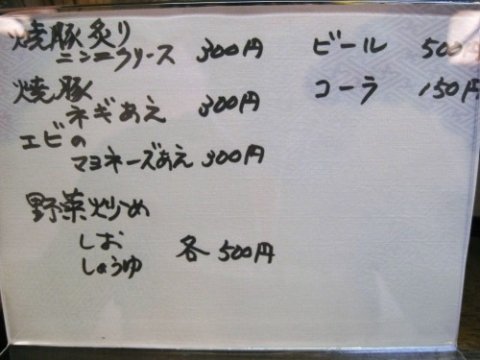 焼豚炙り
ニンニクソース 300円
焼豚
ネギあえ 300円
エビの
マヨネーズあえ 300円
野菜炒め
しお
しょうゆ
各 500円
ビール 500円
コーラ 150円